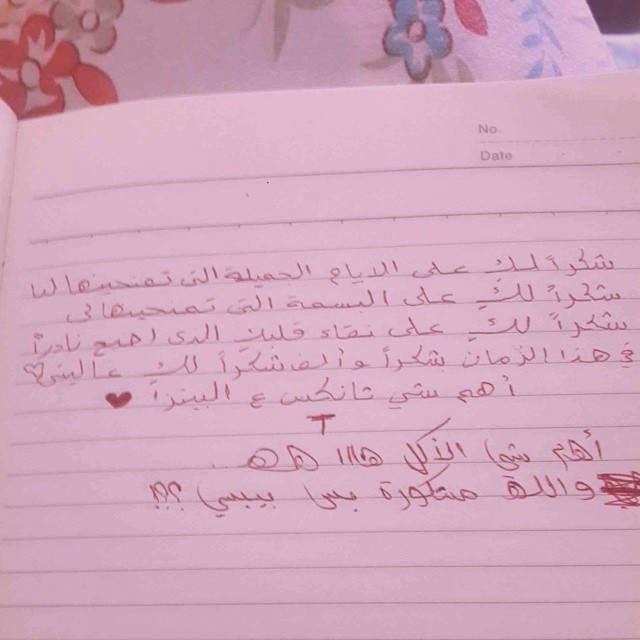 No.
Date
شكراً لك على الايام الجميلة التى تمنحينها لنا
شكراً لكِ على البسمة التى تمنحينها لى
شكراً لكِ على نقاء قلبك الذى اصبح نادراً
في هذا الزمان شكراً وألف شكراً لك عالبيتزا
أهم شي ثانكس ع البيتزا
T
أهم شى الأكل هااا هه
والله مشكورة بس بيبسي ؟؟!!